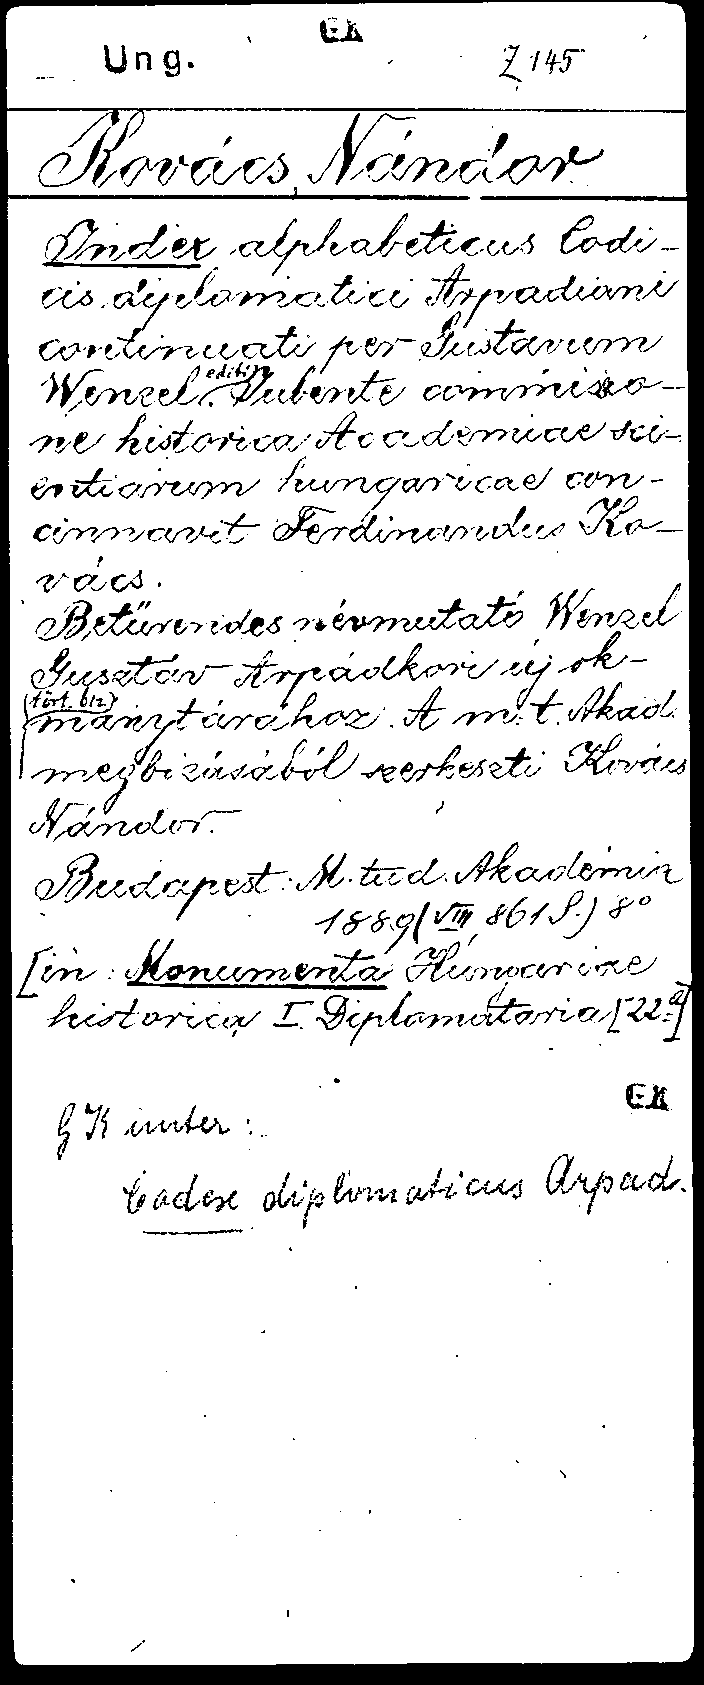 GK
Ung. Z 145
Kovács, Nándor
Index alphabeticus Codi-
cis diplomatici Arpadiani
continuati per Gustavum
Wenzel. editi Jubente commissio-
ne historica Academiae sci-
entiarum hungaricae con-
cinnavit Ferdinandus Ko-
vács.
Betürendes névmutató Wenzel
Gusztáv Árpádkori új ok-
(tört. biz.)
mánytárához. A m. t. Akad.
megbizásából szerkeszti Kovács
Nándor.
Budapest: M. tud. Akadémia
1889 (VIII, 861 S.) 8°
[in: Monumenta Hungariae
historica I. Diplomataria [22a]]
GK
GK unter:
Codex diplomaticus Arpad.